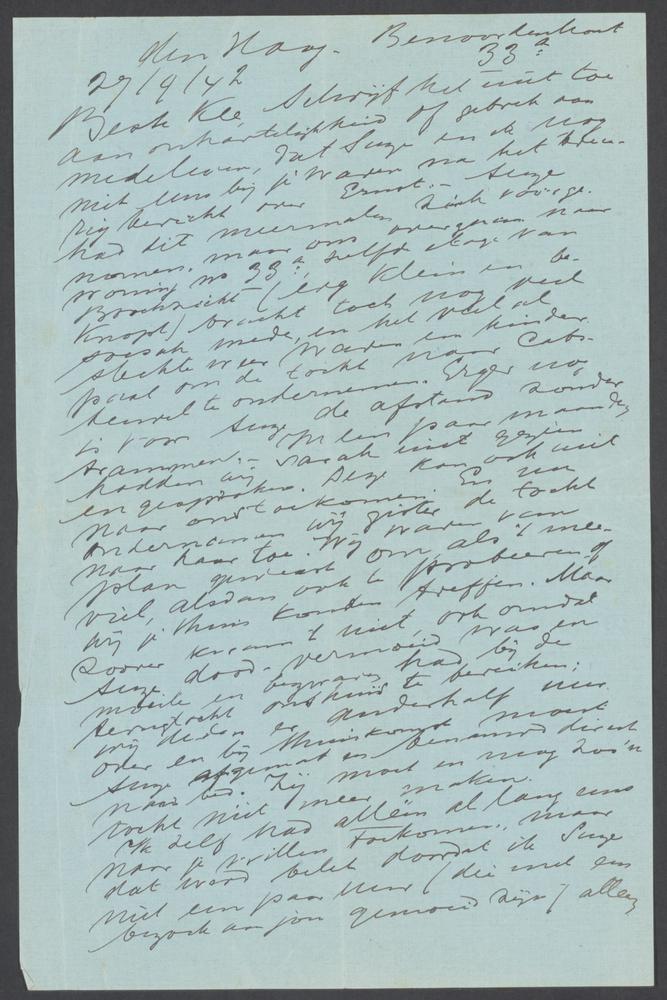 den Haag. Benoordenhout
33a
29/9/42
Beste Ké, Schrijf het niet toe
aan onhartelijkheid of gebrek aan
medeleven, dat Suze en ik nog
niet eens bij je waren na het treu-
rig bericht over Ernst. – Suze
had dit meermalen zich voorge-
nomen, maar ons overgaan naar
woning no 33a, zelfde etage van
Boschzicht (erg klein en be-
knopt) bracht toch nog veel
soesah mede, en het veel al
slechte weer waren een hinder-
paal om de tocht naar
te ondernemen. Erger nog
is voor Suze de afstand zonder
trammen. – In een paar maanden
hadden wij Sarah niet gezien
en gesproken. Deze kan ook niet
naar ons toekomen. En nu
ondernamen wij gister de tocht
naar haar toe. Wij waren van
plan geweest om als 't mee-
viel, alsdan ook te probeeren of
wij je thuis konden treffen. Maar
zoover kwam 't niet, ook omdat
Suze dood-vermoeid was en
moeite en bezwaar had bij de
terugtocht ons huis te bereiken;
wij deden er anderhalf uur
over en bij thuiskomst moest
Suze afgemat en benauwd direct
naar bed. Zij moet en mag zoo'n
tocht niet meer maken.
Ik zelf had alleen al lang eens
naar je willen toekomen, maar
dat werd belet doordat ik Suze
niet een paar uur (die met een
bezoek aan jou gemoeid zijn) alleen